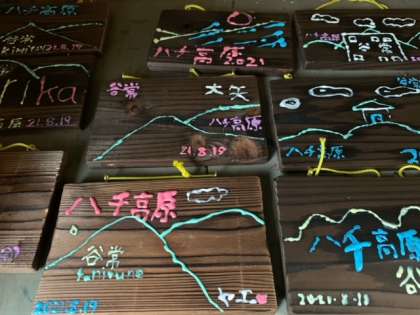 ハチ高原
谷常
21.8.19
rika
高原 21.8.19
ハチ高原2021
谷常
ハチ高原
谷常
大矢
ハチ高原
21.8.19
ハチ高原
ハチ高原
谷常
tanitune
2021.8.19
ヤエ
ハチ高原
谷
2021.8.19